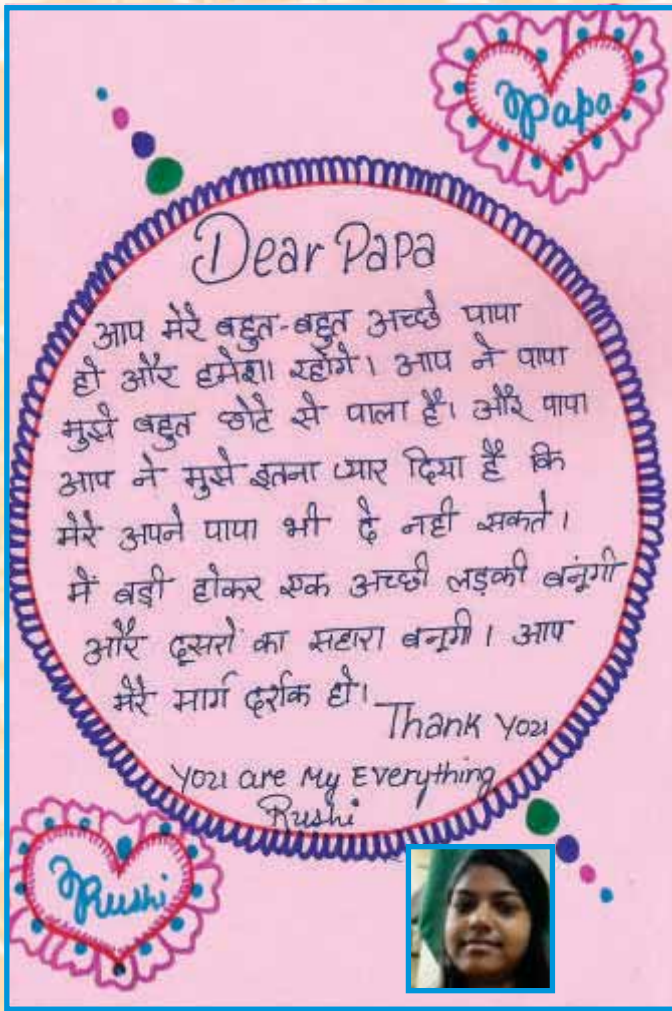 Papa
Dear Papa
आप मेरे बहुत-बहुत अच्छे पापा
हो और हमेशा रहोगे। आप ने पापा
मुझे बहुत छोटे से पाला है। और पापा
आप ने मुझे इतना प्यार दिया है कि
मेरे अपने पापा भी दे नही सकते।
में बड़ी होकर एक अच्छी लड़की बनूंगी
और दूसरों का सहारा बनूगी। आप
मेरे मार्ग दर्शक हो।
Thank You
You are My Everything
Rushi
Rushi